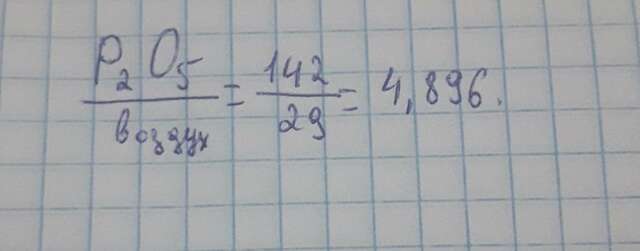 P₂O₅ / воздух = 142 / 29 = 4,896.